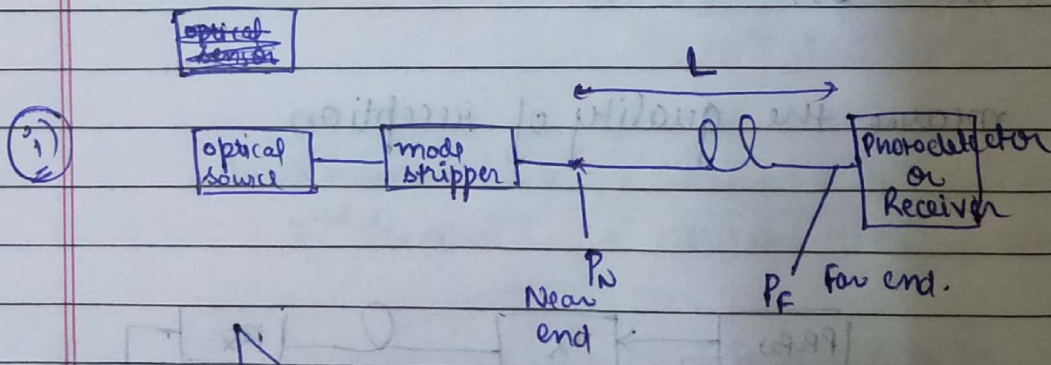 optical
sensor
L
i)
optical
source
mode
stripper
Photodetector
or
Receiver
PN
Near
end
PF Far end.